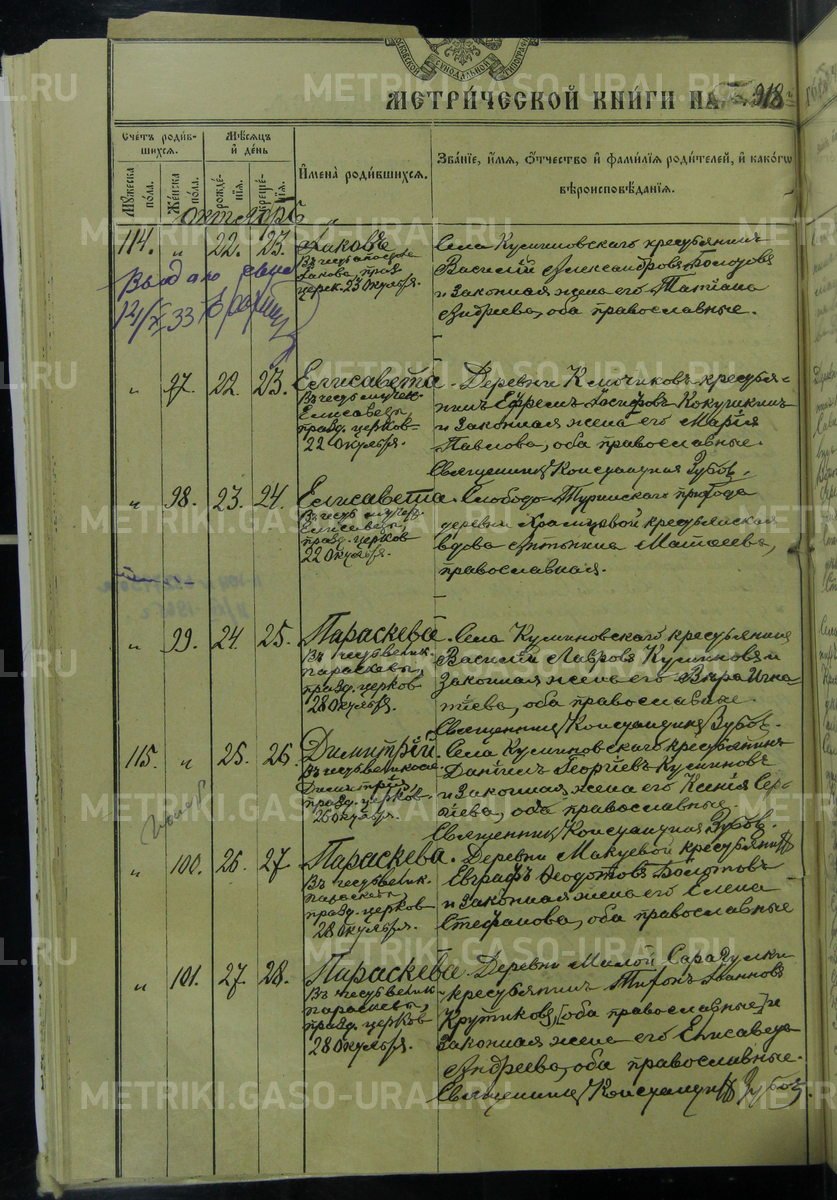 МЕТРИ́ЧЕСКОЙ КНИ́ГИ НА 918
Счетъ роди́вшихся.
Мѣсяцъ и день
Имена̀ роди́вшихся.
Зва́нїе, и́мя, о́тчество и фами́лїя роди́телей, и како́гѡ вѣроисповѣ́данїя.
Мꙋжеска по́ла.
Же́нска по́ла.
рожде́нїя.
креще́нїя.
Октябрь
114. " 22. 23. Іаковъ
Въ честь апостола
Іакова, праз.
церк. 23 Октября.
Села Кулиновскаго крестьянинъ
Василій Александровъ Болотовъ
и законная жена его Татіана
Андреева, оба православные.
Выдано
12/X 33
" 97. 22. 23. Елисавета.
Въ честь мучен.
Елисаветы,
празд. церков
22 Октября.
Деревни Ключиковъ крестья-
нинъ Ефремъ Іосифовъ Кокушкинъ
и законная жена его Марія
Павлова, оба православные.
Священникъ Константинъ Зубовъ.
" 98. 23. 24. Елисавета.
Въ честь мучен.
Елисаветы,
празд. церков
22 Октября.
Слободо-Туринскаго прихода
деревни Храмцовой крестьянская
вдова Антонина Матѳеева,
православная.
" 99. 24. 25. Параскева.
Въ честь велик.
Параскевы,
празд. церков
28 Октября.
Села Кулиновскаго крестьянинъ
Василій Лавровъ Кулиновъ и
законная жена его Вѣра Игна-
тіева, оба православные.
Священникъ Константинъ Зубовъ.
115. " 25. 26. Димитрій.
Въ честь великом.
Димитрія,
празд. церков
26 Октября.
Села Кулиновскаго крестьянинъ
Даніилъ Георгіевъ Кулиновъ
и законная жена его Ксенія Сер-
гіева, оба православные.
Священникъ Константинъ Зубовъ.
" 100. 26. 27. Параскева.
Въ честь велик.
Параскевы,
празд. церков
28 Октября.
Деревни Макуевой крестьянинъ
Евграфъ Ѳеодотовъ Болотовъ
и законная жена его Елена
Стефанова, оба православные
" 101. 27. 28. Параскева.
Въ честь велик.
Параскевы,
празд. церков
28 Октября.
Деревни Малой Сарагулки
крестьянинъ Тифонъ Іоанновъ
Крутиковъ, [оба православные] и
законная жена его Елисавета
Андреева, оба православные.
Священникъ Константинъ Зубовъ.
METRIKI.GASO-URAL.RU